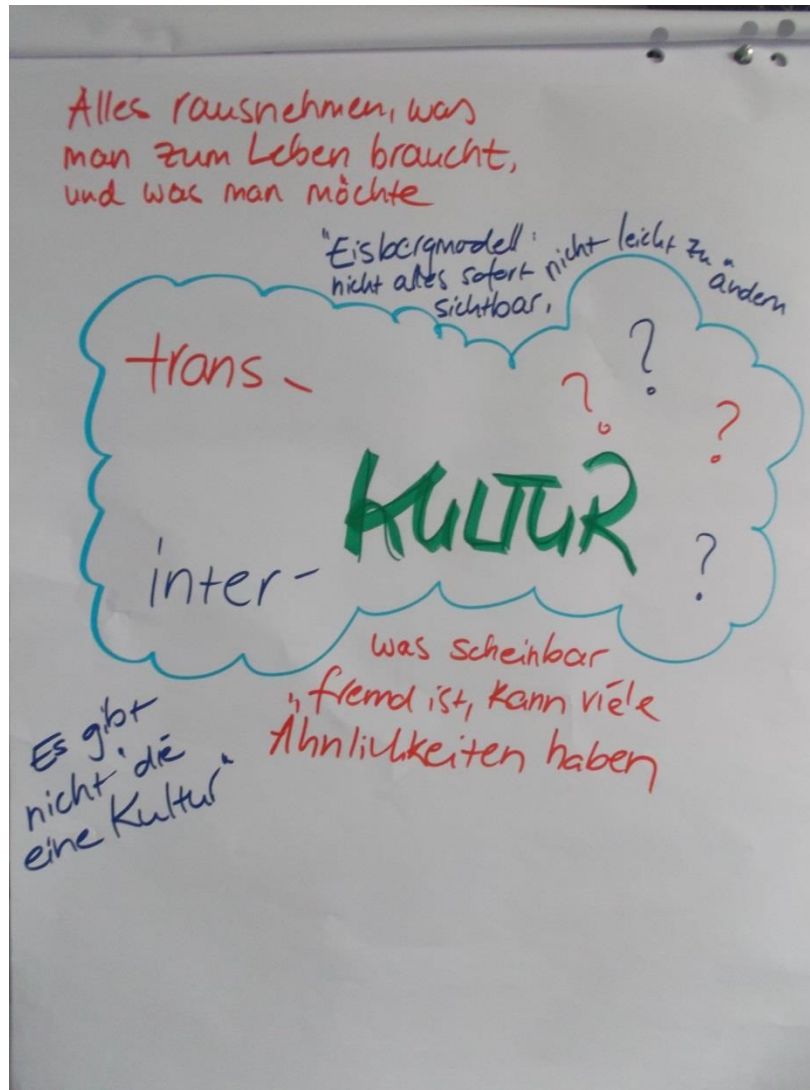 Alles rausnehmen, was
man zum Leben braucht,
und was man möchte
"Eisbergmodell:
nicht alles sofort
sichtbar,
nicht leicht zu
ändern"
trans-
?
?
?
KULTUR
inter-
?
was scheinbar
"fremd ist, kann viele
Ähnlichkeiten haben
Es gibt
nicht "die
eine Kultur"